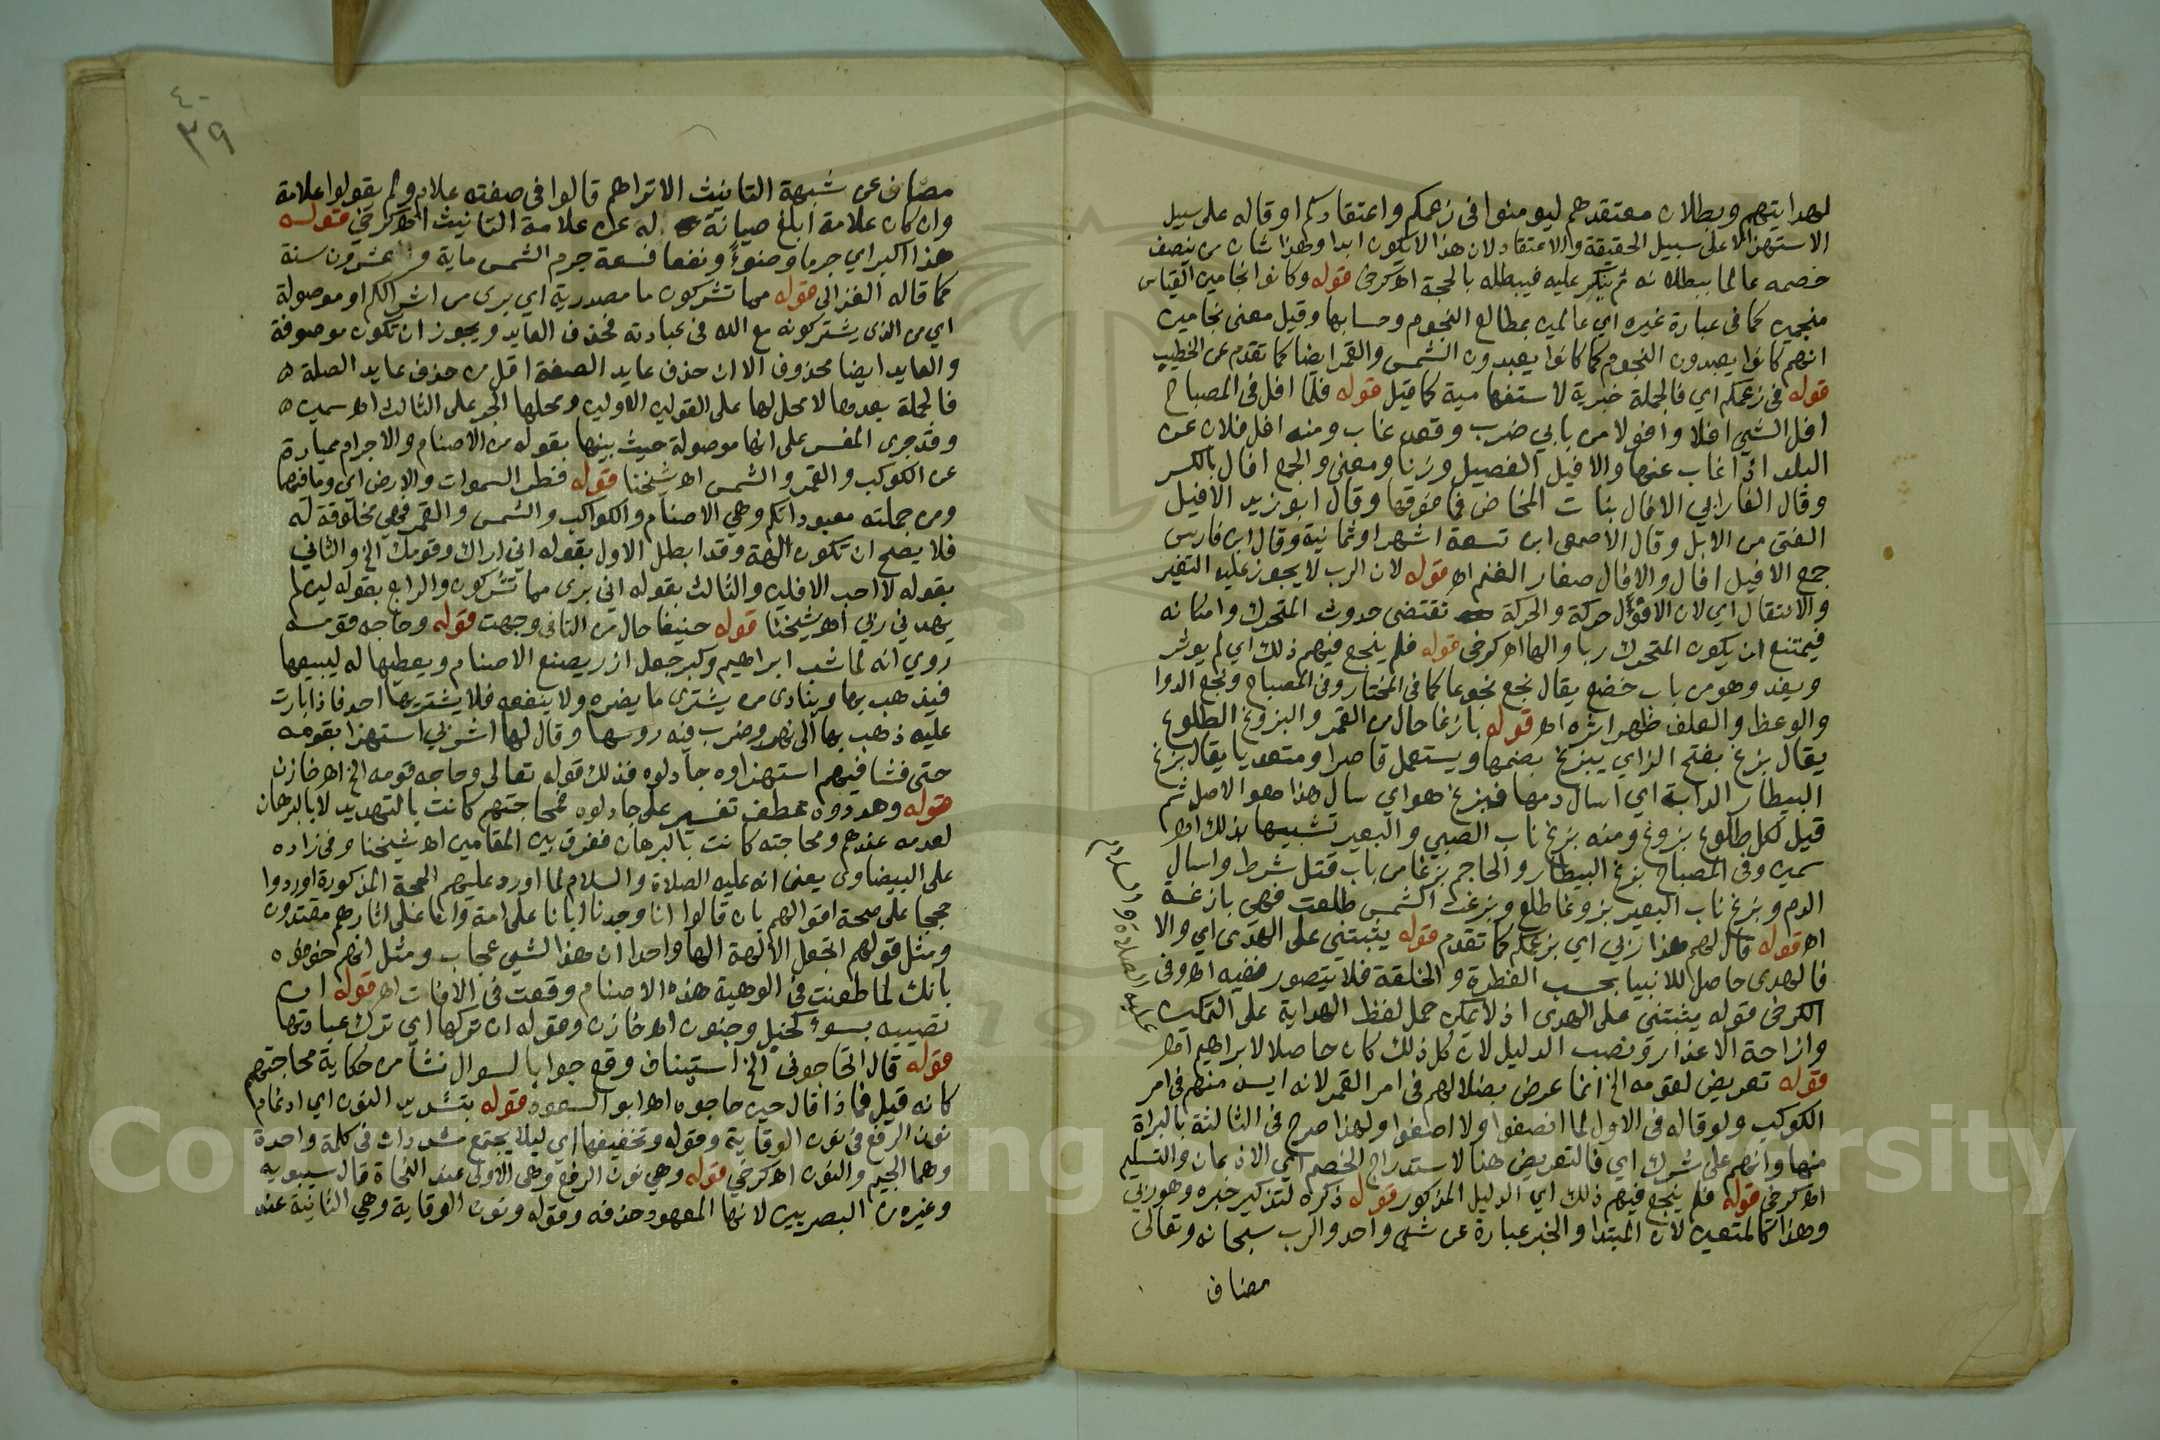 لهدايتهم وبطلان معتقدهم ليومنوا في زعمكم واعتقادكم او قاله على سبيل
الاستهزا لا على سبيل الحقيقة والاعتقاد لان هذا لا يكون ابدا وهذا شان من ينصف
خصمه عالما ببطلانه ثم يكر عليه فيبطله بالحجة اه كرخي قوله وكانوا نجامين القياس
منجمين كما في عبارة غيره اي عالمين بمطالع النجوم وحسابها وقيل معنى نجامين
انهم كانوا يعبدون النجوم كما كانوا يعبدون الشمس والقمر ايضا كما تقدم عن الخطيب
قوله في زعمكم اي فالجملة خبرية لا استفهامية كما قيل قوله فلما افل في المصباح
افل الشي افلا وافولا من بابي ضرب وقعد غاب ومنه افل فلان عن
البلد اذا غاب عنها والافيل الفصيل وزنا ومعنى والجمع افال بالكسر
وقال الفارابي الافال بنات المخاض فما فوقها وقال ابو زيد الافيل
الفتى من الابل وقال الاصمعي ابن تسعة اشهر او ثمانية وقال ابن فارس
جمع الافيل افال والافال صغار الغنم اه قوله لان الرب لا يجوز عليه التغير
والانتقال اي لان الافول حركة والحركة تقتضي حدوث المتحرك وامكانه
فيمتنع ان يكون المتحرك ربا والها اه كرخي قوله فلم ينجع فيهم ذلك اي لم يوثر
ويفد وهو من باب خضع يقال نجع نجوعا كما في المختار وفي المصباح ونجع الدوا
والوعظ والعلف ظهر اثره اه قوله بازغا حال من القمر والبزوغ الطلوع
يقال بزغ بفتح الزاي يبزغ بضمها ويستعمل قاصرا ومتعديا يقال بزغ
البيطار الدابة اي اسال دمها فبزغ هو اي سال هذا هو الاصل ثم
قيل لكل طلوع بزوغ ومنه بزغ ناب الصبي والبعير تشبيها بذلك اه
سمين وفي المصباح بزغ البيطار والحاجم بزغا من باب قتل شرط واسال
الدم وبزغ ناب البعير بزوغا طلع وبزغت الشمس طلعت فهي بازغة
اه قوله قال لهم هذا ربي اي بزعمكم كما تقدم قوله يثبتني على الهدى اي والا
فالهدى حاصل للانبيا بحسب الفطرة والخلقة فلا يتصور نفيه اه وفي
الكرخي قوله يثبتني على الهدى اذ لا يمكن حمل لفظ الهداية على التمكن
وازاحة الاعذار ونصب الدليل لان كل ذلك كان حاصلا لابراهيم اه
عليه الصلاة والسلام
قوله تعريض لقومه الخ انما عرض بضلالهم في امر القمر لانه ايس منهم في امر
الكوكب ولو قاله في الاول لما انصفوا ولا اصغوا ولهذا صرح في الثالثة بالبراة
منها وانهم على شرك اي فالتعريض هنا لاستدراج الخصم الي الاذعان والتسليم
اه كرخي قوله فلم ينجع فيهم ذلك اي الدليل المذكور قوله ذكره لتذكير خبره وهو ربي
وهذا كالمتعين لان المبتدا والخبر عبارة عن شي واحد والرب سبحانه وتعالى
مضاف
٤٠
٣٩
مصان عن شبهة التانيث الا تراهم قالوا في صفته علام ولم يقولوا علامة
وان كان علامة ابلغ صيانة له عن علامة التانيث اه كرخي قوله
هذا اكبر اي جرما وضوءً ونفعا فسعة جرم الشمس ماية وعشرون سنة
كما قاله الغزالي قوله مما تشركون ما مصدرية اي بري من اشراككم او موصولة
اي من الذي يشتركونه مع الله في عبادته فحذف العايد ويجوز ان تكون موصوفة
والعايد ايضا محذوف الا ان حذف عايد الصفة اقل من حذف عايد الصلة
فالجملة بعدها لا محل لها على القولين الاولين ومحلها الجر على الثالث اه سمين
وقد جرى المفسر على انها موصولة حيث بينها بقوله من الاصنام والاجرام عبارة
عن الكوكب والقمر والشمس اه شيخنا قوله فطر السموات والارض اي وما فيهما
ومن جملته معبوداتكم وهي الاصنام والكواكب والشمس والقمر فهي مخلوقة له
فلا يصلح ان تكون الهة وقد ابطل الاول بقوله اني اراك وقومك الخ والثاني
بقوله لا احب الافلين والثالث بقوله اني بري مما تشركون والرابع بقوله لين لم
يهدني ربي اه شيخنا قوله حنيفا حال من التا في وجهت قوله وحاجه قومه
روي انه لما شب ابراهيم وكبر جعل ازر يصنع الاصنام ويعطيها له ليبيعها
فيذهب بها وينادي من يشتري ما يضره ولا ينفعه فلا يشتريها احد فاذا بارت
عليه ذهب بها الى نهر وضرب فيه روسها وقال لها اشربي استهزا بقومه
حتى فشا فيهم استهزاوه جادلوه فذلك قوله تعالى وحاجه قومه الخ اه خازن
قوله وهددوه عطف تفسير على جادلوه فمحاجتهم كانت بالتهديد لا بالبرهان
لعدمه عندهم ومحاجته كانت بالبرهان ففرق بين المقامين اه شيخنا وفي زاده
على البيضاوي يعني انه عليه الصلاة والسلام لما اورد عليهم الحجة المذكورة اوردوا
حججا على صحة اقوالهم بان قالوا انا وجدنا ابانا على امة وانا على اثارهم مقتدون
ومثل قولهم اجعل الالهة الها واحدا ان هذا لشي عجاب ومثل انهم خوفوه
بانك لما طعنت في الوهية هذه الاصنام وقعت في الافات اه قوله ان
تصيبه بسوء كخبل وجنون اه خازن وقوله ان تركها اي ترك عبادتها
قوله قال اتحاجوني الخ استيناف وقع جوابا لسوال نشا من حكاية محاجتهم
كانه قيل فماذا قال حين حاجوه اه ابو السعود قوله بتشديد النون اي ادغام
نون الرفع في نون الوقاية وقوله وتخفيفها اي ليلا يجتمع مشددان في كلمة واحدة
وهما الجيم والنون اه كرخي قوله وهي نون الرفع وهي الاولى عند النحاة قال سيبويه
وغيره من البصريين لانها المعهود حذفه وقوله ونون الوقاية وهي الثانية عند